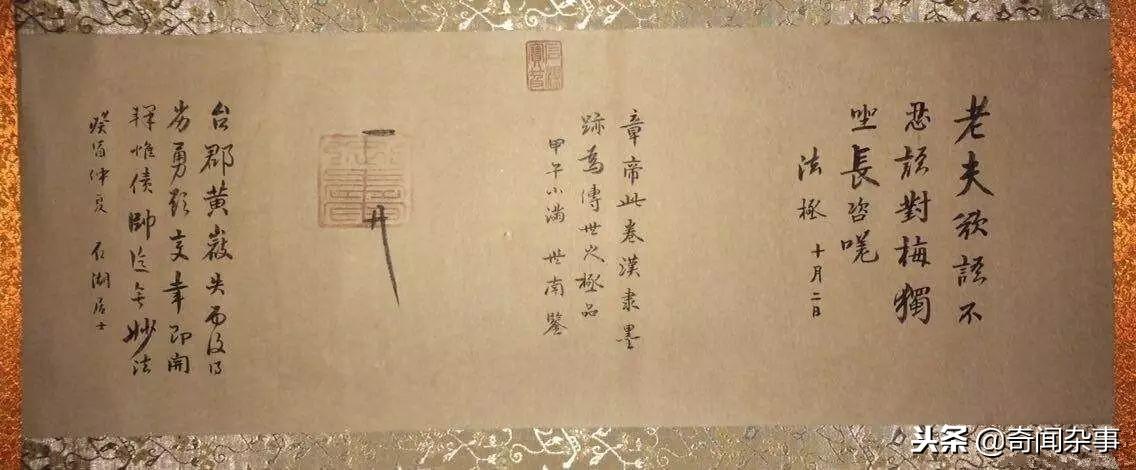 老夫欲語不
忍語對梅獨
坐長咨嗟
法極 十月二日
章帝此卷漢隶墨
跡為傳世之極品
甲午小满 世南鑒
台郡黄巖失而復得
劣勇 文 即開
釋惟債帥 妙法
癸酉仲夏 石湖居士
头条@奇闻杂事